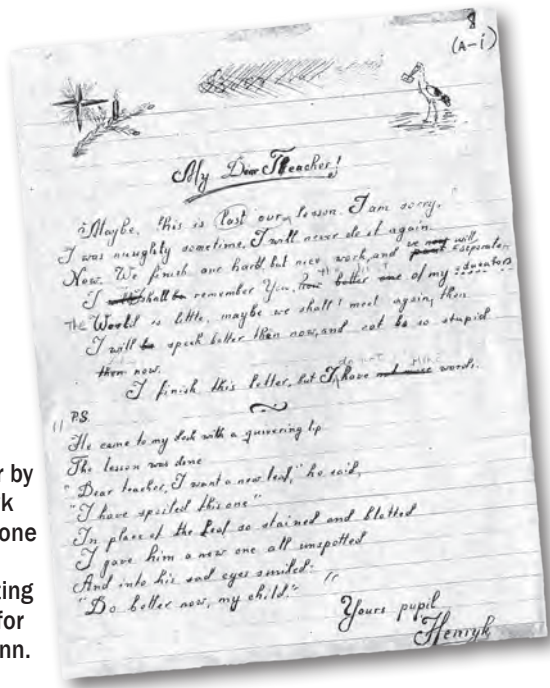 8
(A-i)
My Dear Teacher!
Maybe, this is last our lesson. I am sorry.
I was nuughty sometime. I will never do it again.
Now. We finish our hard, but nice work, and we will separate,
I shall remember You, better of my educators
The World is little, maybe we shall meet again, then
I will speak better then now, and not be so stupid
them now.
I finish this letter, but I have words.
PS.
He came to my desk with a quivering lip
The lesson was done
"Dear teacher, I want a new leaf," he said,
"I have spoiled this one"
In place of the leaf so stained and blotted
I gave him a new one all unspotted
And into his sad eyes smiled:
"Do better now, my child."
Yours pupil
Henryk
r by
k
one
ting
for
nn.